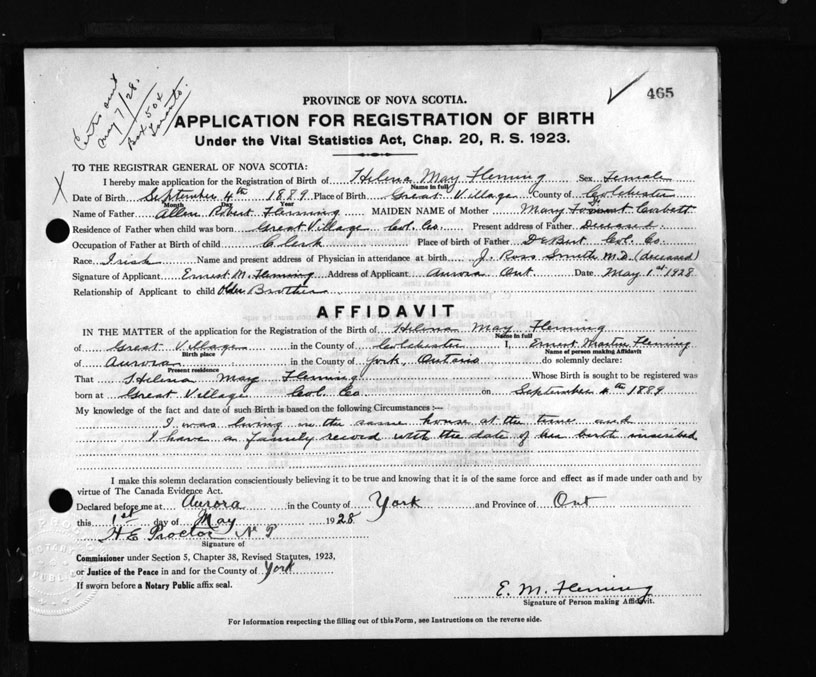 Certs sent
May 7/28.
Box 502
Toronto.
465
PROVINCE OF NOVA SCOTIA.
APPLICATION FOR REGISTRATION OF BIRTH
Under the Vital Statistics Act, Chap. 20, R. S. 1923.
TO THE REGISTRAR GENERAL OF NOVA SCOTIA:
I hereby make application for the Registration of Birth of Helena May Fleming Sex Female
Name in full
Date of Birth September 4th 1889 Place of Birth Great Village County of Colchester
Month Day Year
Name of Father Allen Robert Fleming MAIDEN NAME of Mother Mary Corbett
Residence of Father when child was born Great Village Col. Co. Present address of Father Deceased
Occupation of Father at Birth of child Clerk Place of birth of Father DeBert Col. Co.
Race Irish Name and present address of Physician in attendance at birth J. Ross Smith M.D. (deceased)
Signature of Applicant Ernest M. Fleming Address of Applicant Aurora Ont Date May 1st 1928
Relationship of Applicant to child Older Brother
AFFIDAVIT
IN THE MATTER of the application for the Registration of the Birth of Helena May Fleming
Name in full
of Great Village in the County of Colchester I, Ernest Martin Fleming
Birth place Name of person making Affidavit
of Aurora in the County of York, Ontario do solemnly declare:
Present residence
That Helena May Fleming Whose Birth is sought to be registered was
born at Great Village Col. Co. on September 4th 1889
My knowledge of the fact and date of such Birth is based on the following Circumstances:—
I was living in the same house at the time and
I have a family record with the date of her birth inscribed
I make this solemn declaration conscientiously believing it to be true and knowing that it is of the same force and effect as if made under oath and by
virtue of The Canada Evidence Act.
Declared before me at Aurora in the County of York and Province of Ont
this 1st day of May 1928
H E Proctor N P
Signature of
Commissioner under Section 5, Chapter 38, Revised Statutes, 1923,
or Justice of the Peace in and for the County of York
If sworn before a Notary Public affix seal.
E. M. Fleming
Signature of Person making Affidavit.
For Information respecting the filling out of this Form, see Instructions on the reverse side.